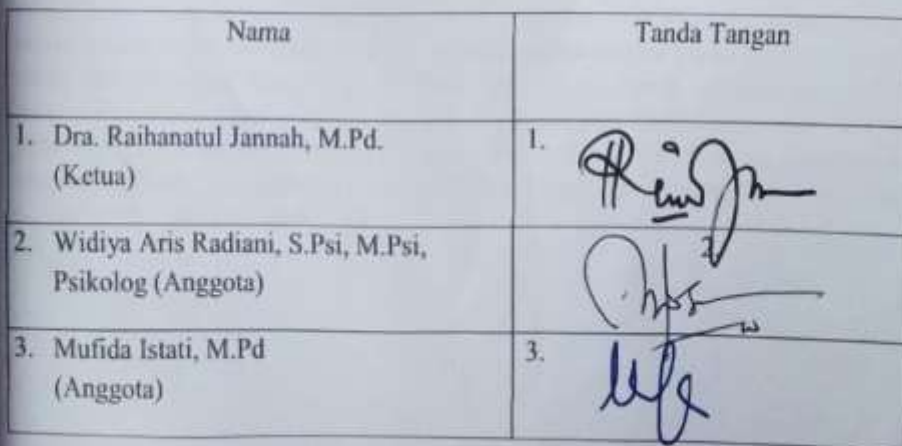 Nama
Tanda Tangan
1. Dra. Raihanatul Jannah, M.Pd.
(Ketua)
1.
2. Widiya Aris Radiani, S.Psi, M.Psi,
Psikolog (Anggota)
2
3. Mufida Istati, M.Pd
(Anggota)
3.